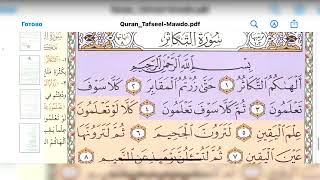 Готово
Quran_Tafseel-Mawdo.pdf
سُورَةُ التَّكَاثُرِ
بِسْمِ اللَّهِ الرَّحْمَٰنِ الرَّحِيمِ
أَلْهَىٰكُمُ التَّكَاثُرُ ١ حَتَّىٰ زُرْتُمُ الْمَقَابِرَ ٢ كَلَّا سَوْفَ
تَعْلَمُونَ ٣ ثُمَّ كَلَّا سَوْفَ تَعْلَمُونَ ٤ كَلَّا لَوْ تَعْلَمُونَ
عِلْمَ الْيَقِينِ ٥ لَتَرَوُنَّ الْجَحِيمَ ٦ ثُمَّ لَتَرَوُنَّهَا
عَيْنَ الْيَقِينِ ٧ ثُمَّ لَتُسْأَلُنَّ يَوْمَئِذٍ عَنِ النَّعِيمِ ٨